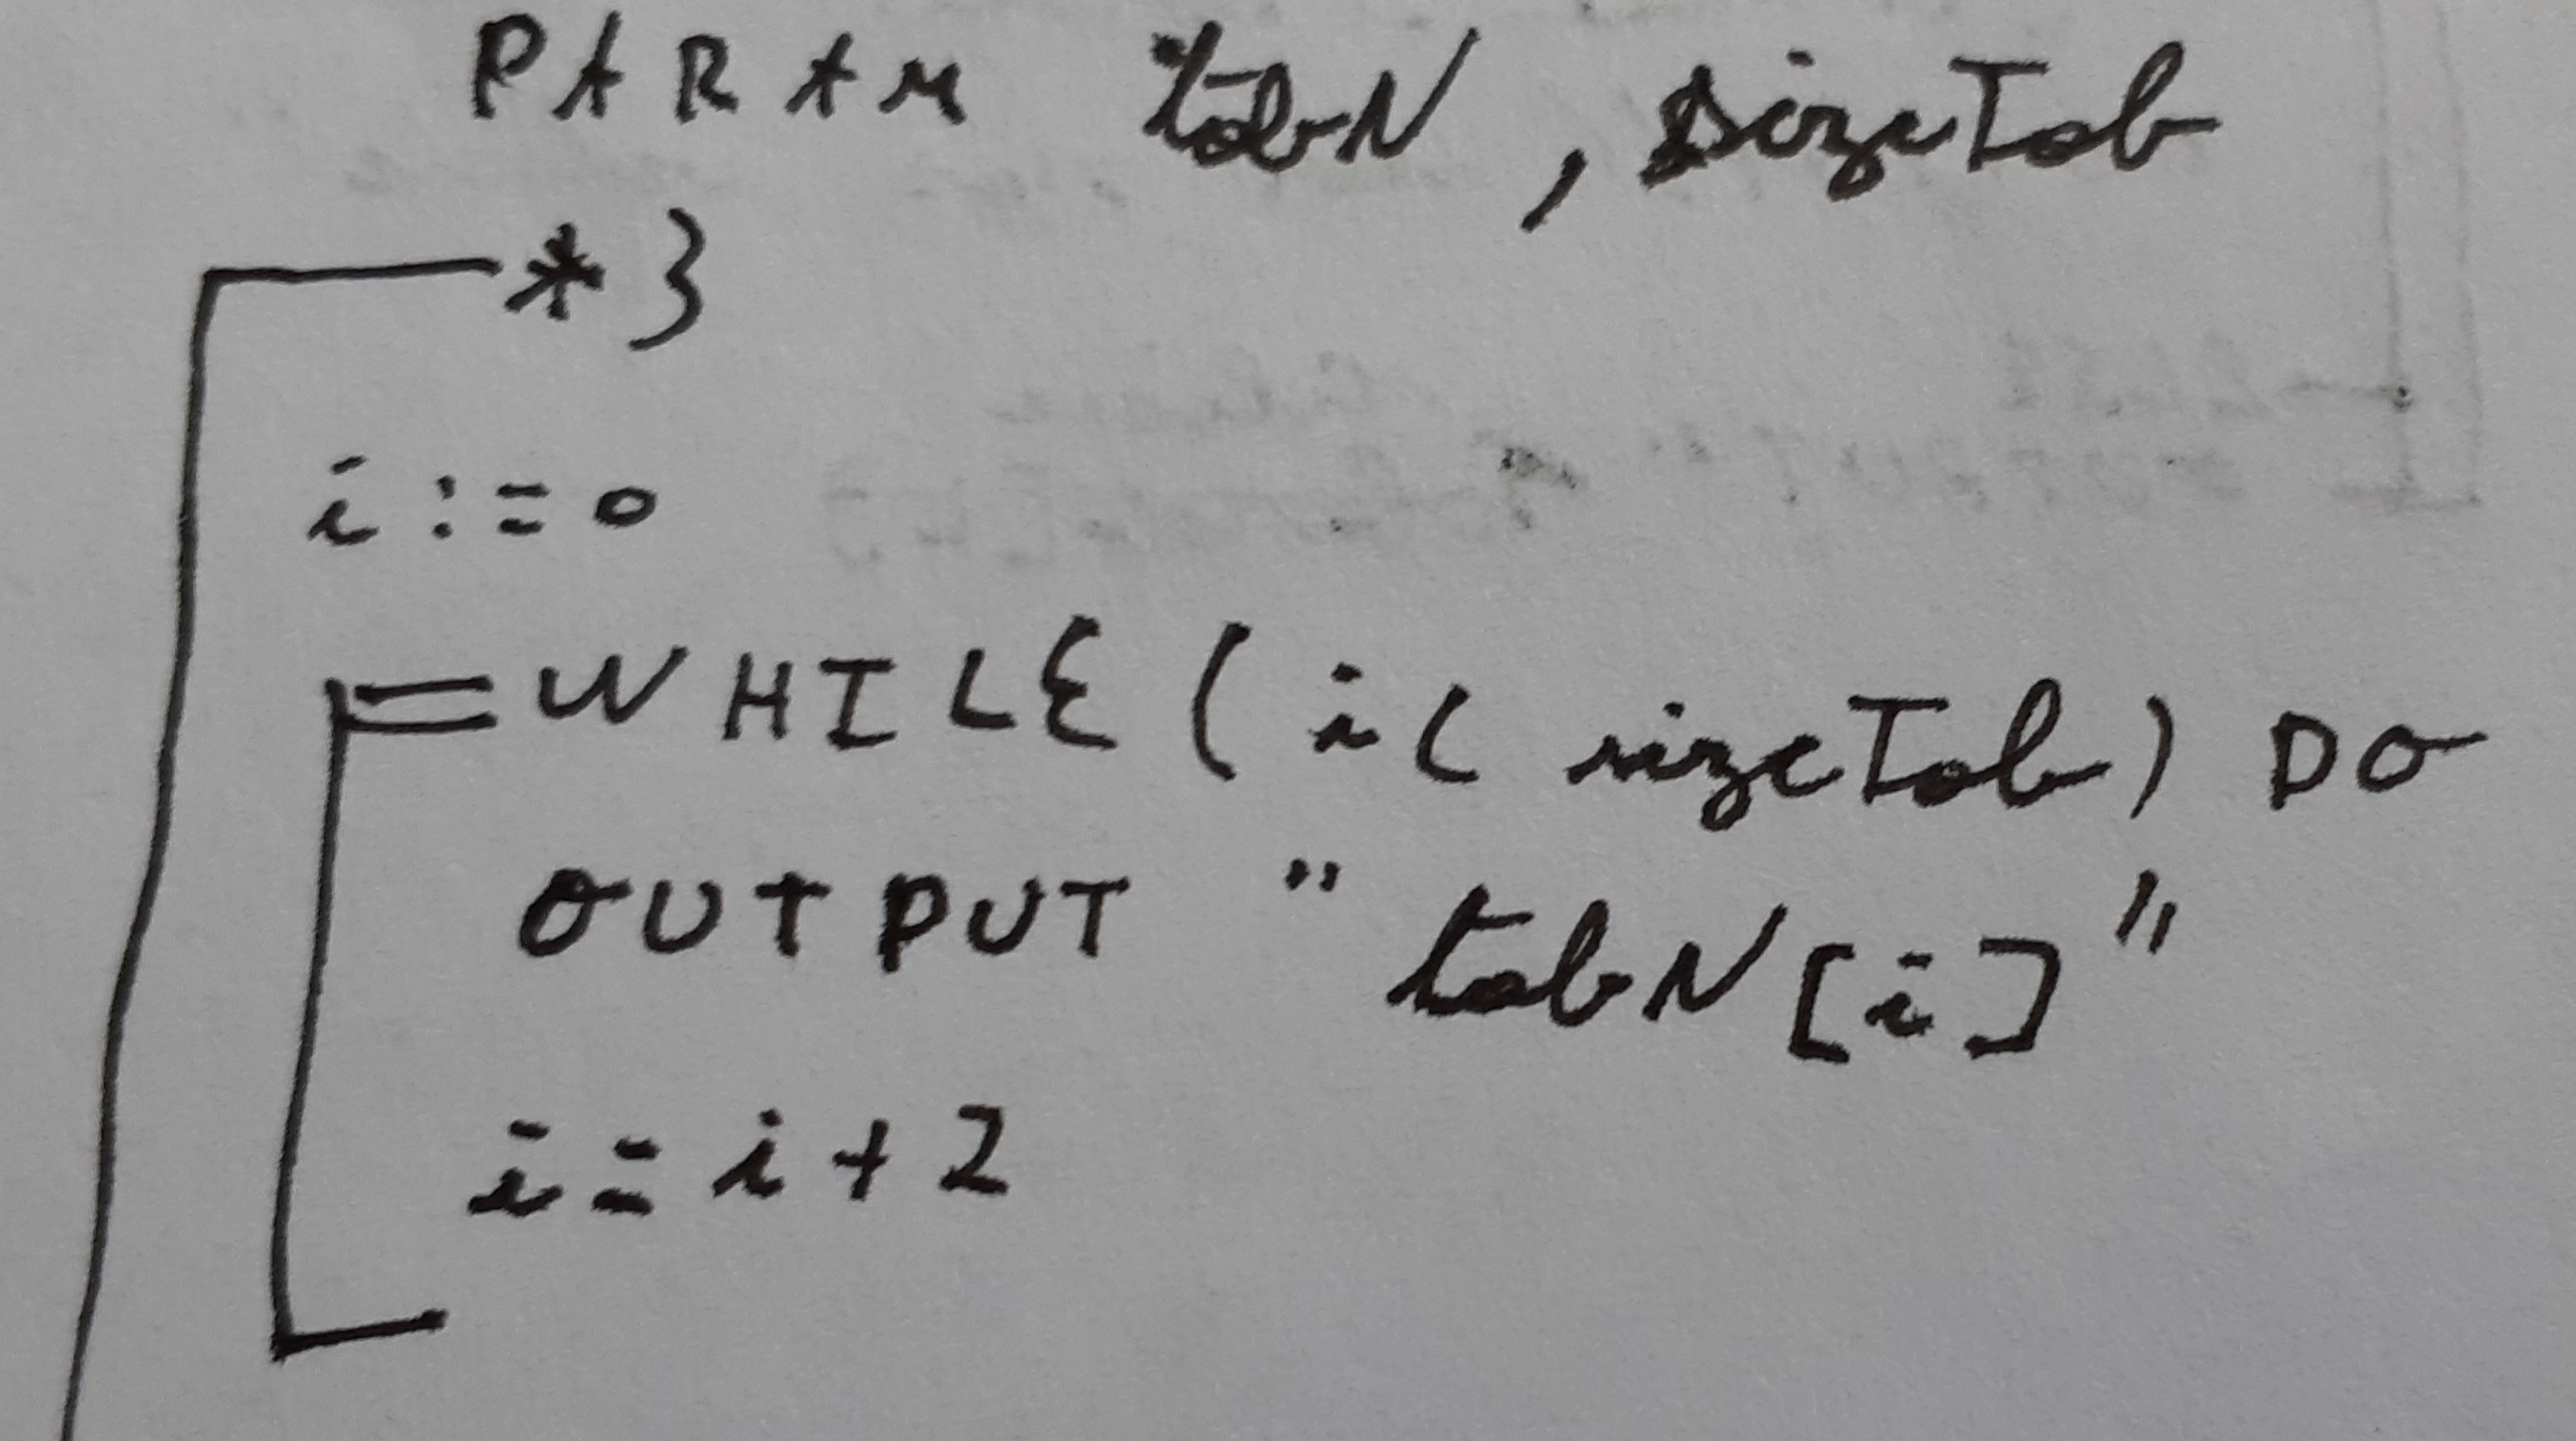 PARAM tabN, sizeTab
*}
i := 0
WHILE ( i < sizeTab ) DO
OUTPUT "tabN[i]"
i = i + 2